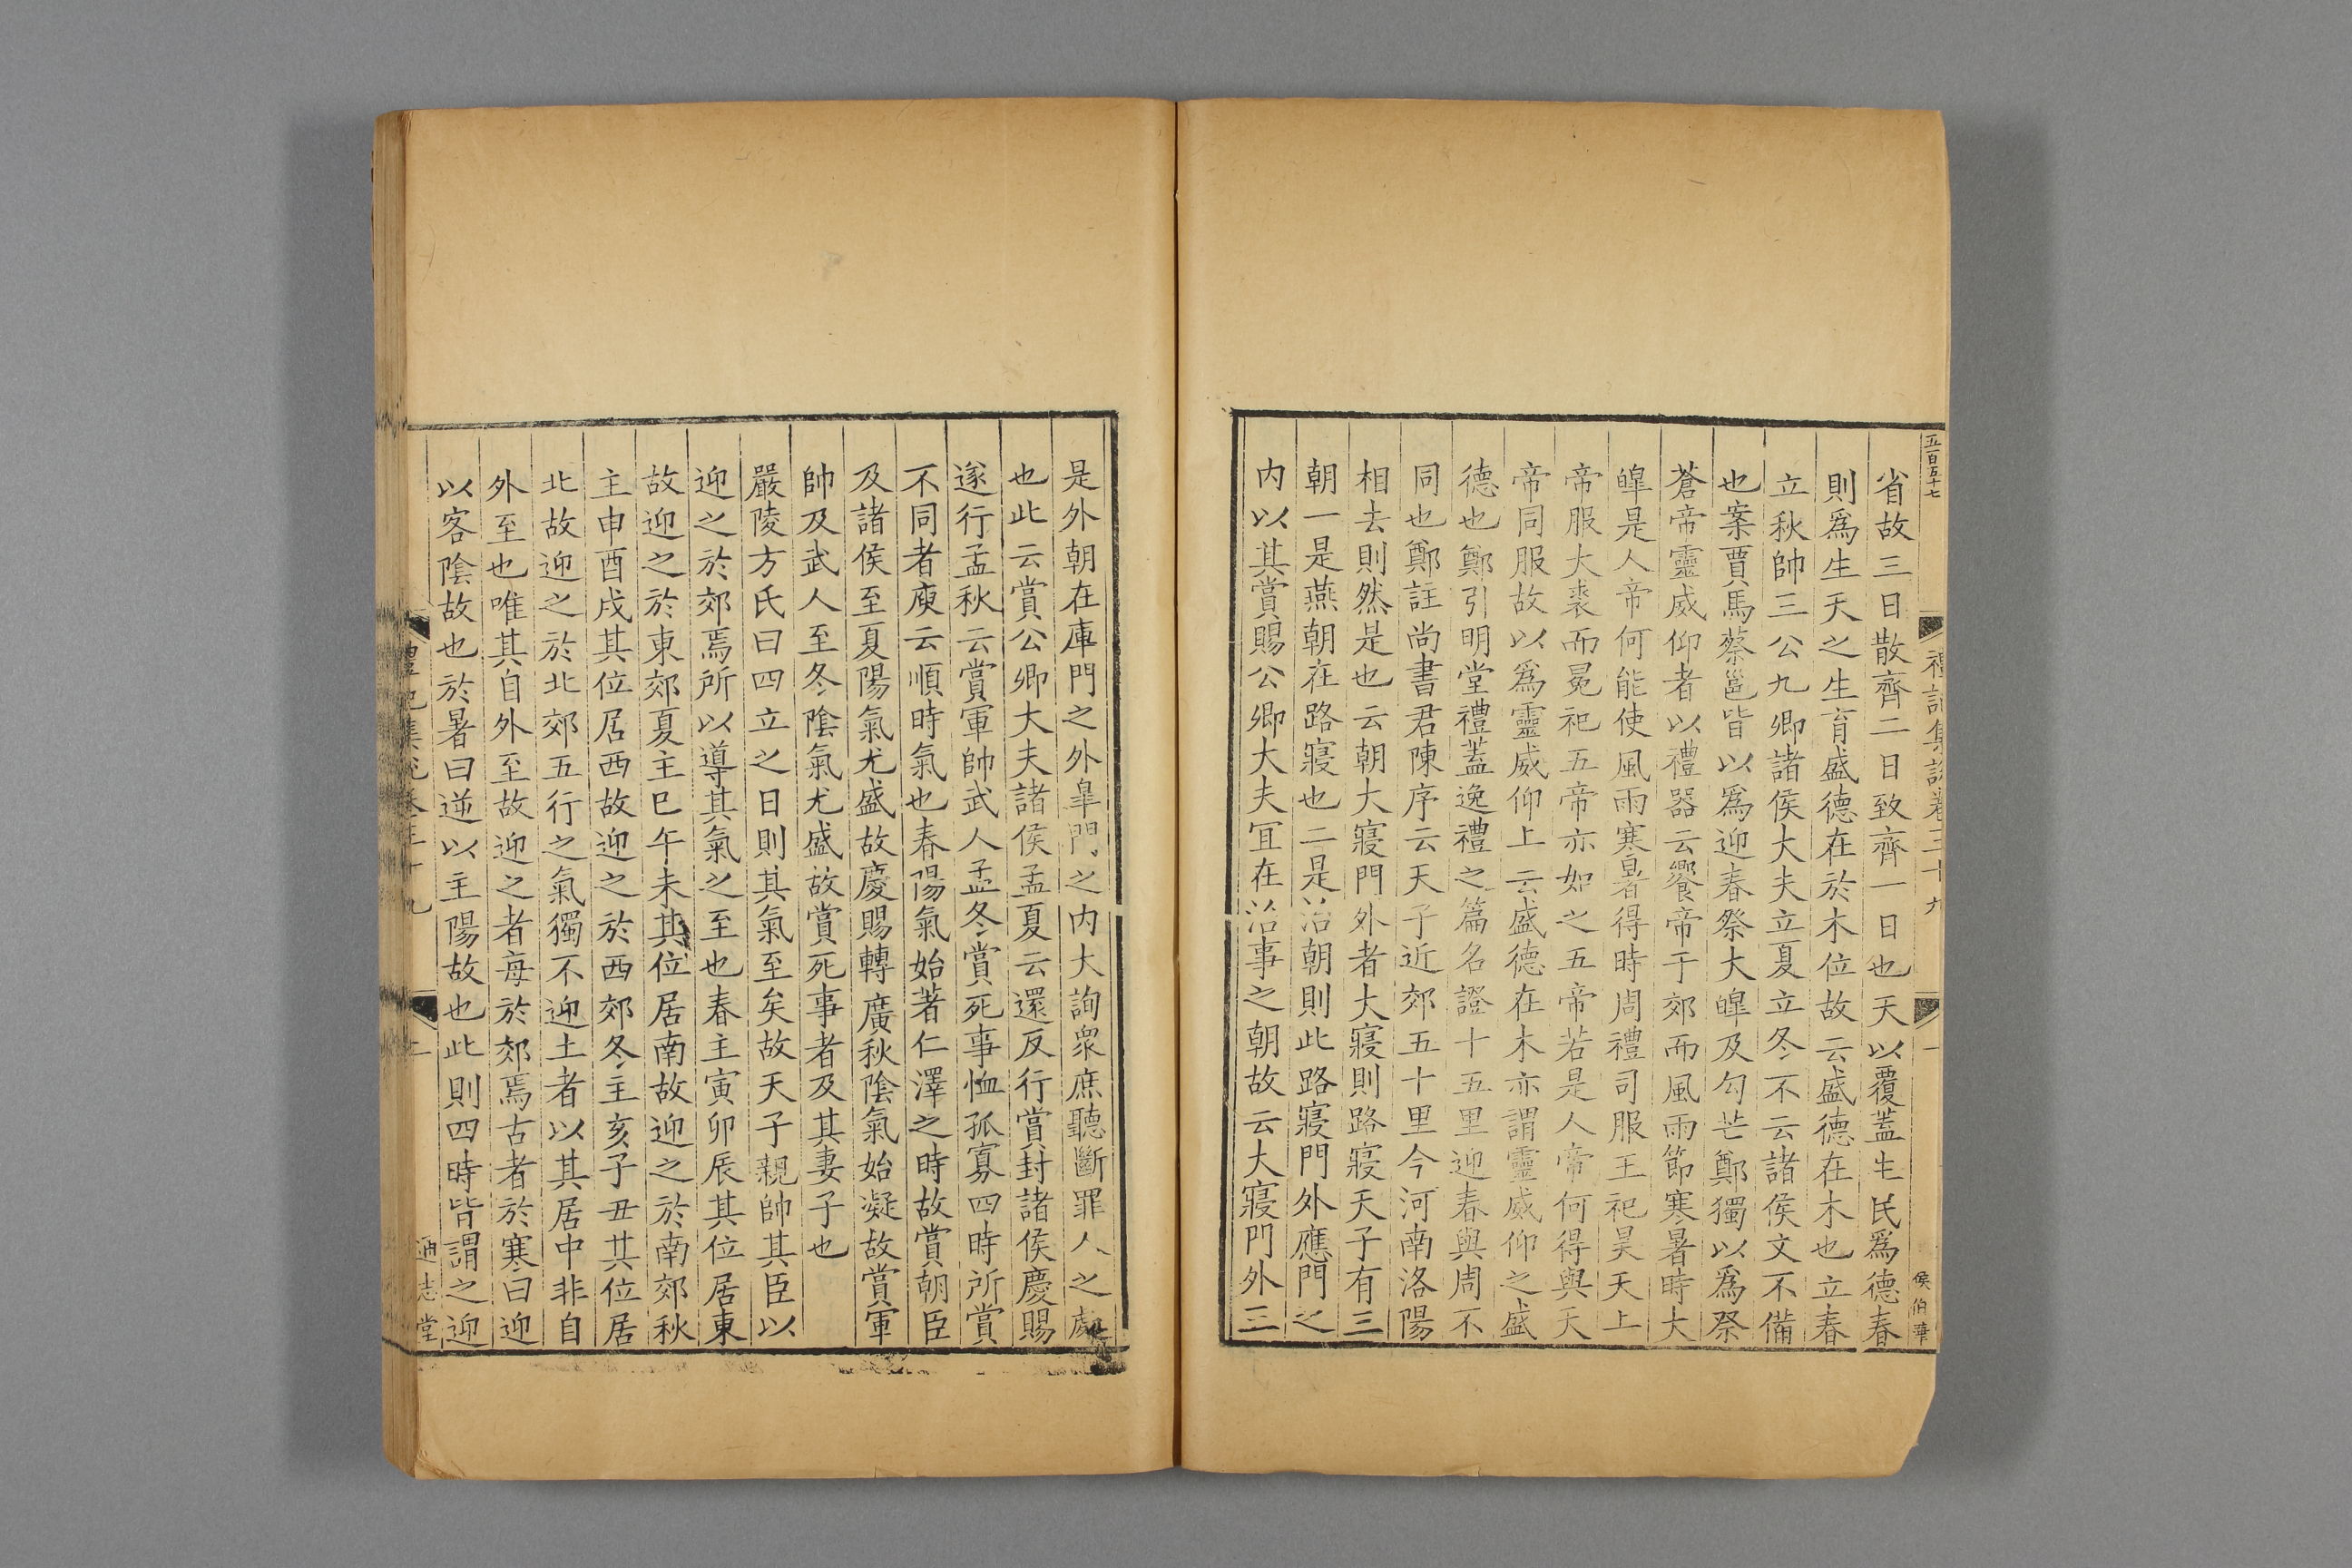 五百五十七
禮記集說卷三十九
一
侯伯華
省故三日散齊二日致齊一日也天以覆蓋生民爲德春
則爲生天之生育盛德在於木位故云盛德在木也立春
立秋帥三公九卿諸侯大夫立夏立冬不云諸侯文不備
也案賈馬蔡邕皆以爲迎春祭大皥及勾芒鄭獨以爲祭
蒼帝靈威仰者以禮器云饗帝于郊而風雨節寒暑時大
皥是人帝何能使風雨寒暑得時周禮司服王祀昊天上
帝服大裘而冕祀五帝亦如之五帝若是人帝何得與天
帝同服故以爲靈威仰上云盛德在木亦謂靈威仰之盛
德也鄭引明堂禮蓋逸禮之篇名證十五里迎春與周不
同也鄭註尚書君陳序云天子近郊五十里今河南洛陽
相去則然是也云朝大寢門外者大寢則路寢天子有三
朝一是燕朝在路寢也二是治朝則此路寢門外應門之
内以其賞賜公卿大夫宜在治事之朝故云大寢門外三
是外朝在庫門之外臯門之内大詢衆庶聽斷罪人之處
也此云賞公卿大夫諸侯孟夏云還反行賞封諸侯慶賜
遂行孟秋云賞軍帥武人孟冬賞死事恤孤寡四時所賞
不同者庾云順時氣也春陽氣始著仁澤之時故賞朝臣
及諸侯至夏陽氣尤盛故慶賜轉廣秋陰氣始凝故賞軍
帥及武人至冬陰氣尤盛故賞死事者及其妻子也
嚴陵方氏曰四立之日則其氣至矣故天子親帥其臣以
迎之於郊焉所以導其氣之至也春主寅卯辰其位居東
故迎之於東郊夏主巳午未其位居南故迎之於南郊秋
主申酉戌其位居西故迎之於西郊冬主亥子丑其位居
北故迎之於北郊五行之氣獨不迎土者以其居中非自
外至也唯其自外至故迎之者毎於郊焉古者於寒曰迎
以客陰故也於暑曰逆以主陽故也此則四時皆謂之迎
禮記集說卷三十九
通志堂